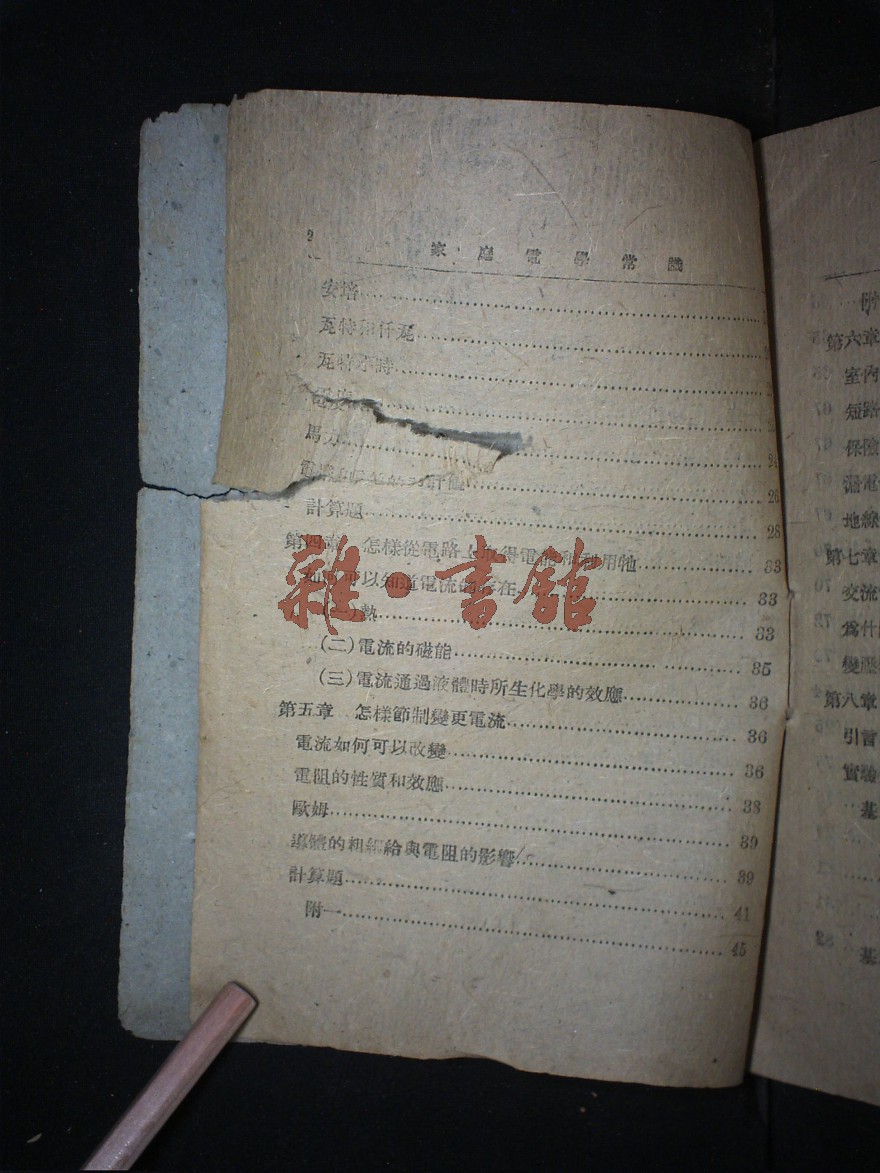 2 家庭電學常識
安培……
瓦特和仟瓦……
瓦特小時……
馬力…… 24
26
計算題…… 28
第四章 怎樣從電路上取得電能和利用牠…… 33
如何可以知道電流的存在…… 33
(一)熱…… 33
(二)電流的磁能…… 35
(三)電流通過液體時所生化學的效應…… 36
第五章 怎樣節制變更電流…… 36
電流如何可以改變…… 36
電阻的性質和效應…… 38
歐姆…… 39
導體的粗細給與電阻的影響…… 39
計算題…… 41
附一…… 45
附
第六章
室內
短路
保險
漏電
地線
第七章
交流
爲什
變壓
第八章
引言
實驗
基
基
雜·書館